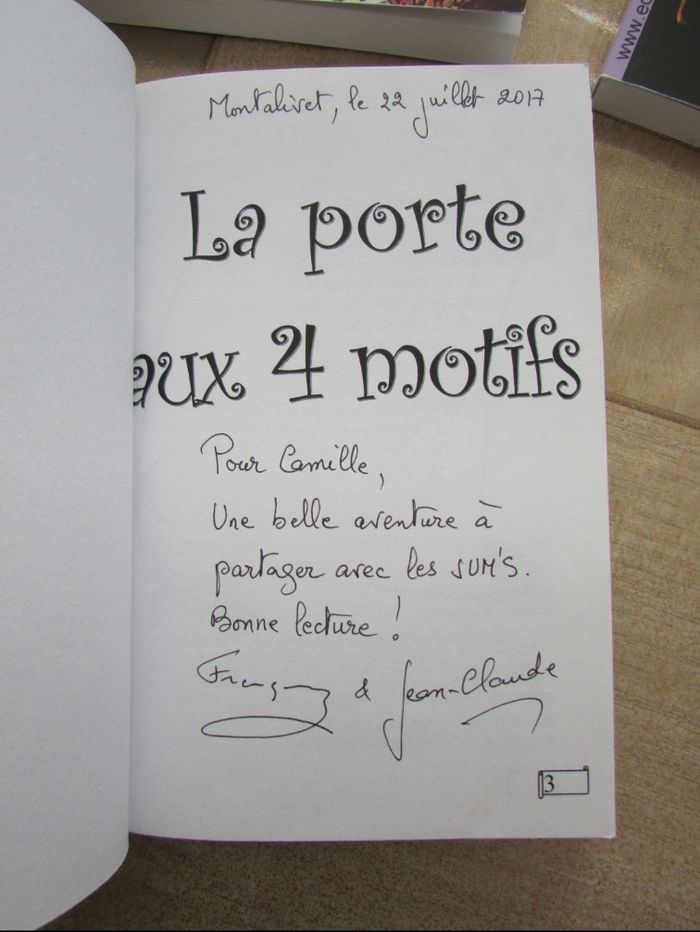 www.ec
Montalivet, le 22 juillet 2017
La porte
aux 4 motifs
Pour Camille,
Une belle aventure à
partager avec les SUM'S.
Bonne lecture !
& Jean-Claude
3